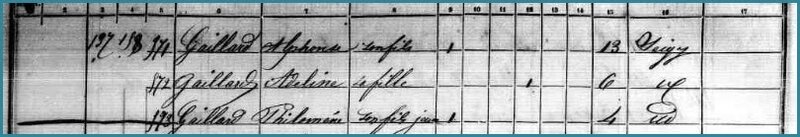 2 3 4 5 6 7 8 9 10 11 12 13 14 15 16 17
137 158 571 Gaillard Alphonse son fils 1 13
572 Gaillard Adeline sa fille 1 6 id
573 Gaillard Philomène son fils jum 1 4 id